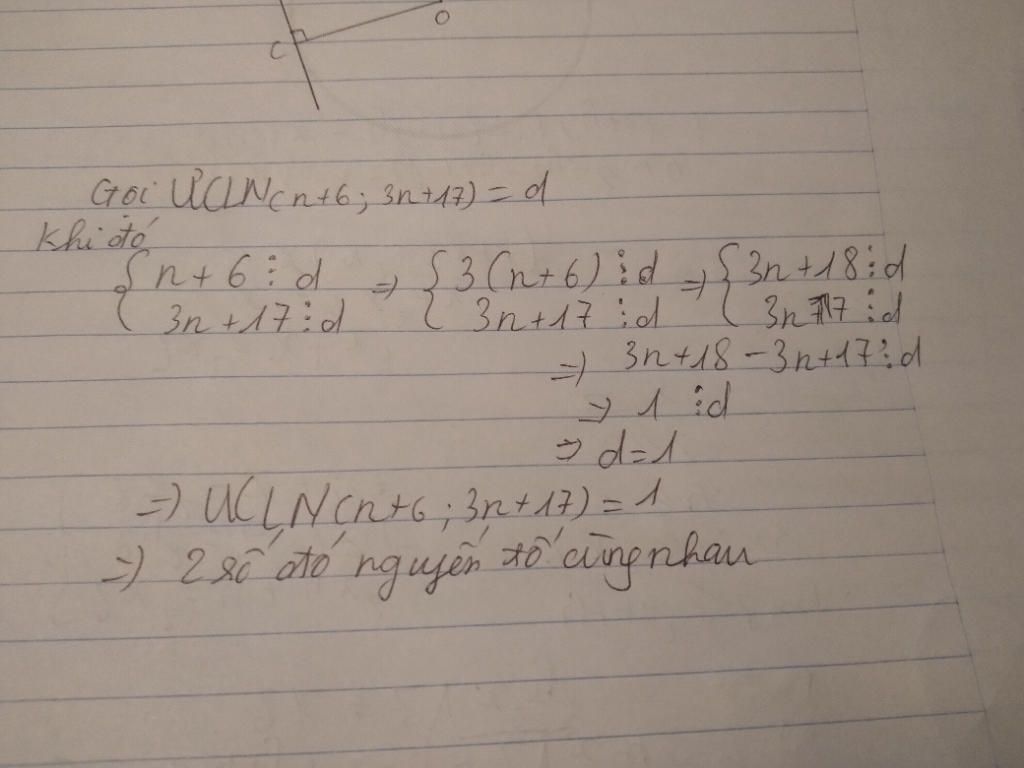 C
O
Gọi ƯCLN(n+6; 3n+17) = d
Khi đó
{ n+6 ⋮ d ⇒ { 3(n+6) ⋮ d ⇒ { 3n+18 ⋮ d
3n+17 ⋮ d 3n+17 ⋮ d 3n+17 ⋮ d
⇒ 3n+18 - 3n+17 ⋮ d
⇒ 1 ⋮ d
⇒ d=1
⇒ ƯCLN(n+6; 3n+17) = 1
⇒ 2 số đó nguyến tố cùng nhau